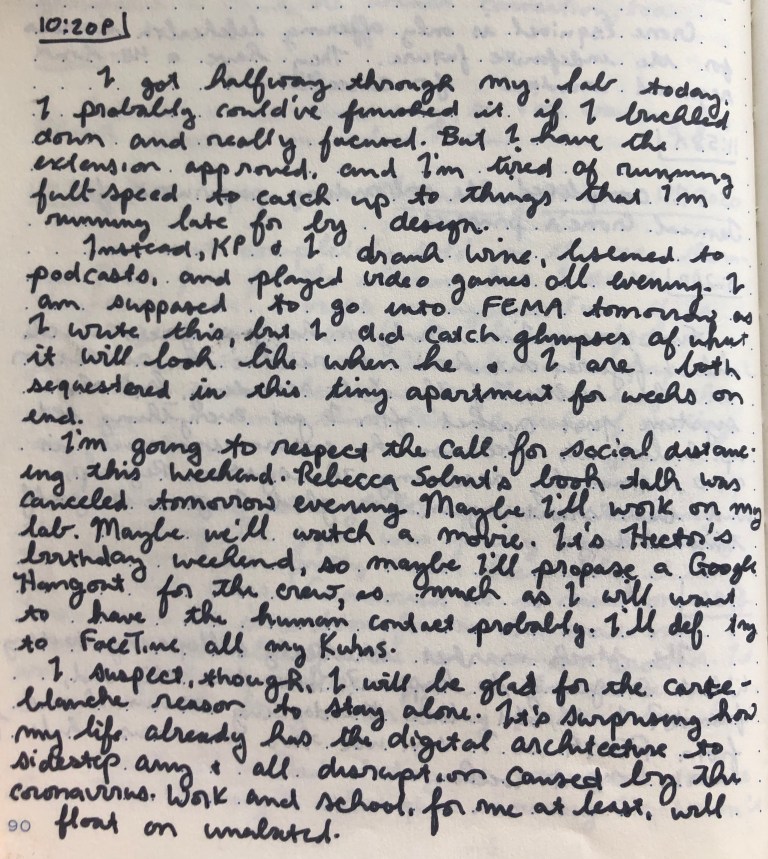 10:20P
I got halfway through my lab today.
I probably could've finished it if I buckled
down and really focused. But I have the
extension approved, and I'm tired of running
full speed to catch up to things that I'm
running late for by design.
Instead, KP & I drank wine, listened to
podcasts, and played video games all evening. I
am supposed to go into FEMA tomorrow as
I write this, but I did catch glimpses of what
it will look like when he & I are both
sequestered in this tiny apartment for weeks on
end.
I'm going to respect the call for social distanc-
ing this weekend. Rebecca Solnit's book talk was
canceled tomorrow evening. Maybe I'll work on my
lab. Maybe we'll watch a movie. It's Hector's
birthday weekend, so maybe I'll propose a Google
Hangout for the crew, as much as I will want
to have the human contact probably. I'll def try
to FaceTime all my
I suspect, though, I will be glad for the carte-
blanche reason to stay alone. It's surprising how
my life already has the digital architecture to
sidestep any & all disruption caused by the
coronavirus. Work and school, for me at least, will
90 float on unabated.